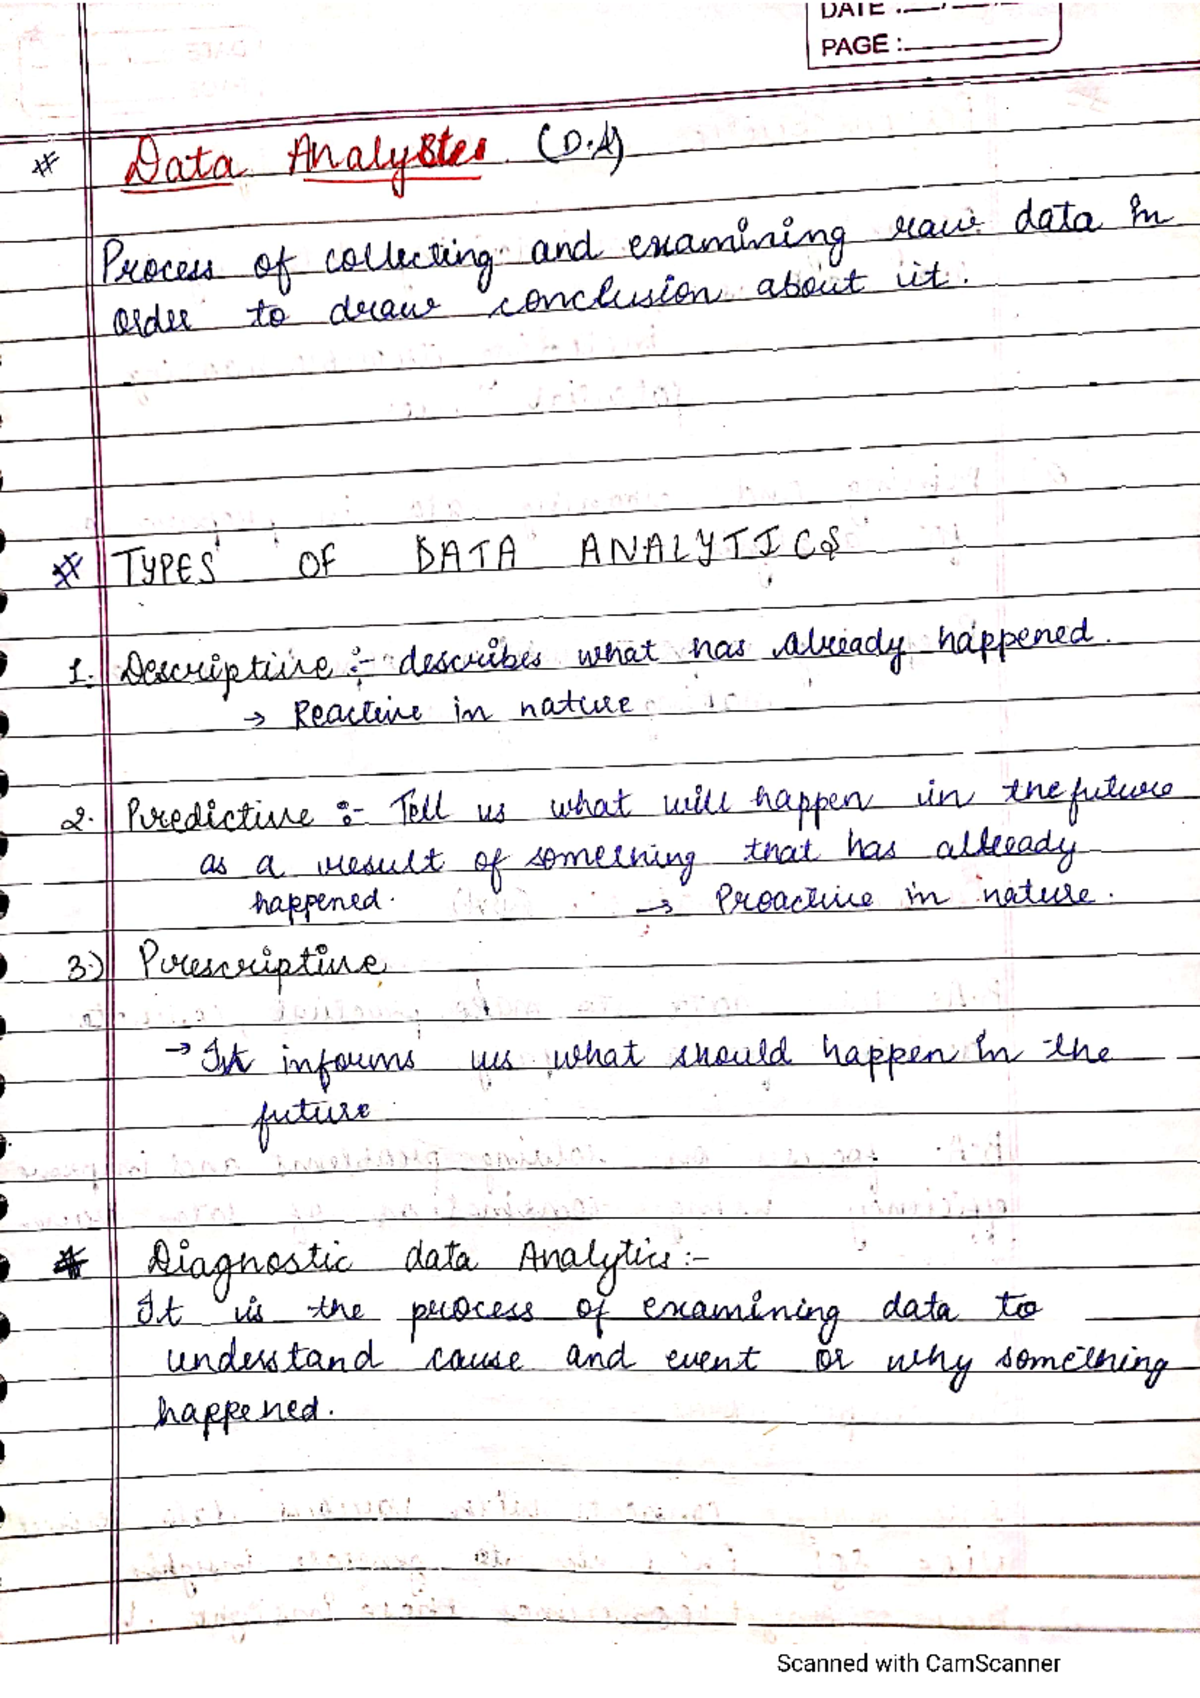 DATE :
PAGE :
# Data Analysis (D.A)
Process of collecting and examining raw data in
order to draw conclusion about it.
# TYPES OF DATA ANALYTICS
1. Descriptive :- describes what has already happened.
→ Reactive in nature
2. Predictive :- Tell us what will happen in the future
as a result of something that has already
happened. → Proactive in nature.
3.) Prescriptive
→ It informs us what should happen in the
future
# Diagnostic data Analytics :-
It is the process of examining data to
understand cause and event or why something
happened.
Scanned with CamScanner